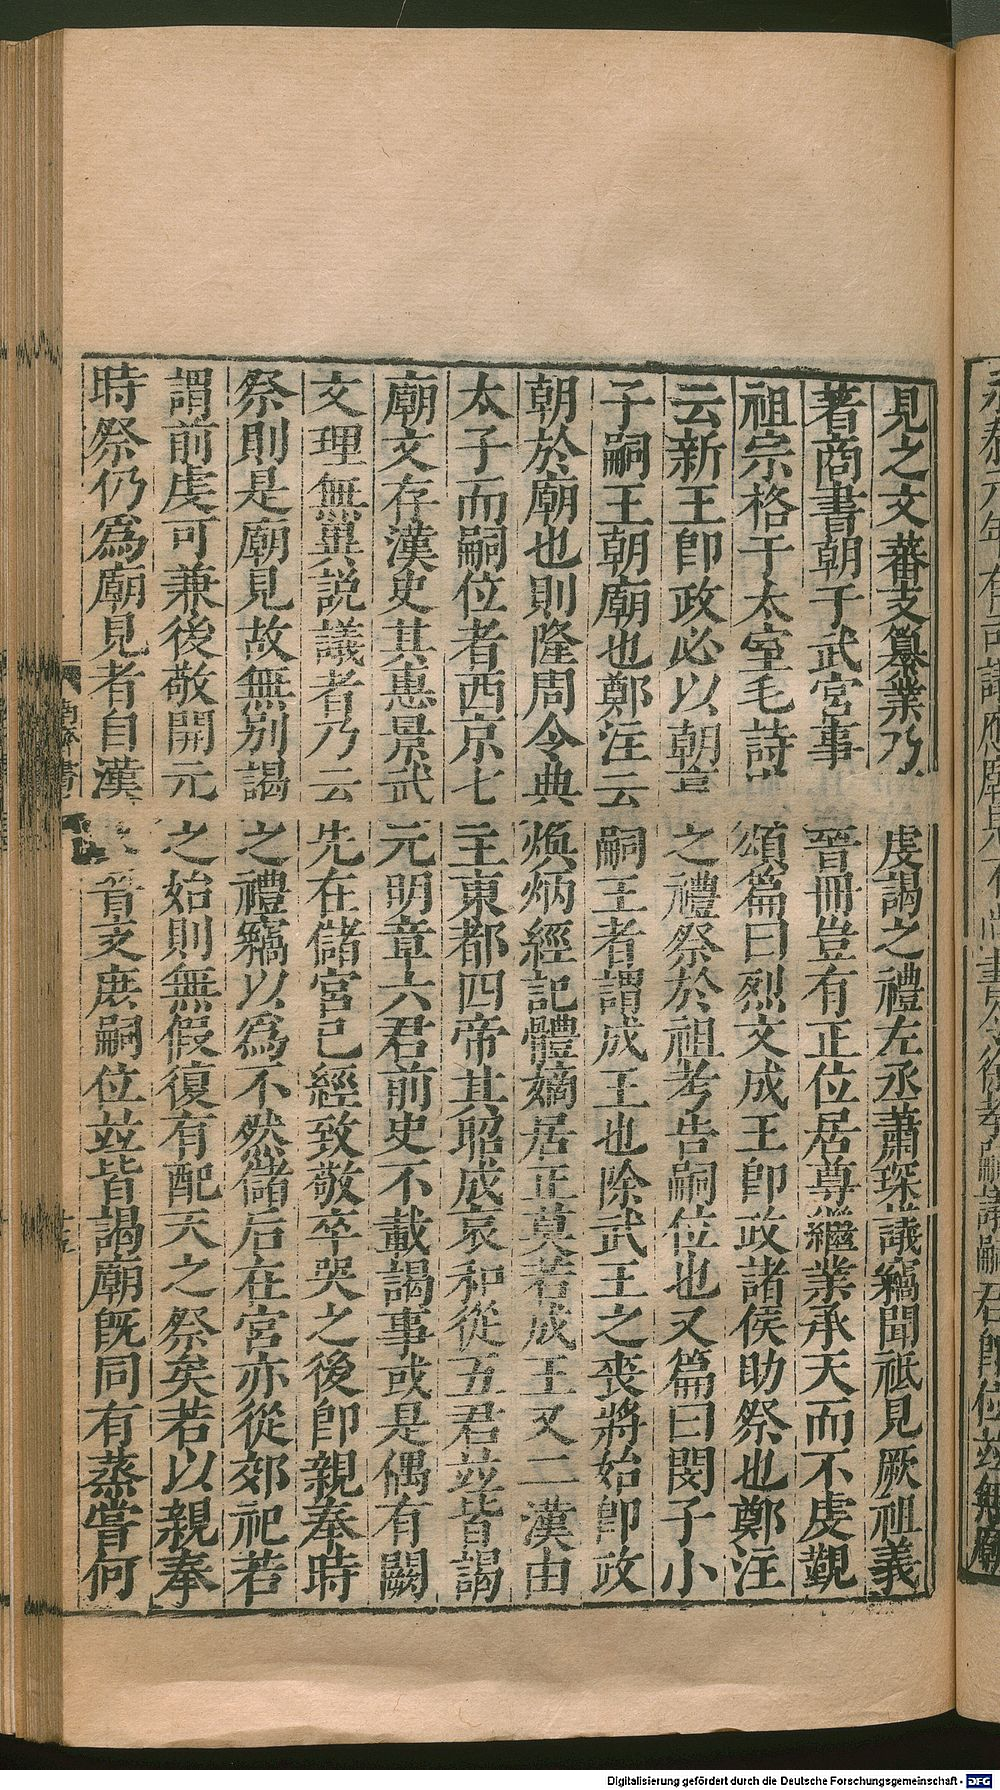 永泰元年有司議應廟見不尚書令徐孝嗣議嗣君即位並無廟
見之文蕃支纂業乃虔謁之禮左丞蕭琛議竊聞祗見厥祖義
著商書朝于武宮事晉冊豈有正位居尊繼業承天而不虔覲
祖宗格于太室毛詩周頌篇曰烈文成王即政諸侯助祭也鄭注
云新王即政必以朝享之禮祭於祖考告嗣位也又篇曰閔子小
子嗣王朝廟也鄭注云嗣王者謂成王也除武王之喪將始即政
朝於廟也則隆周令典煥炳經記體嫡居正莫若成王又二漢由
太子而嗣位者西京七主東都四帝其昭成哀和從五君並皆謁
廟文存漢史其惠景武元明章六君前史不載謁事或是偶有闕
文理無異説議者乃云先在儲宮已經致敬卒哭之後即親奉時
祭則是廟見故無別謁之禮竊以爲不然儲后在宮亦從郊祀若
謂前虔可兼後敬開元之始則無假復有配天之祭矣若以親奉
時祭仍爲廟見者自漢晉支庶嗣位並皆謁廟旣同有蒸嘗何